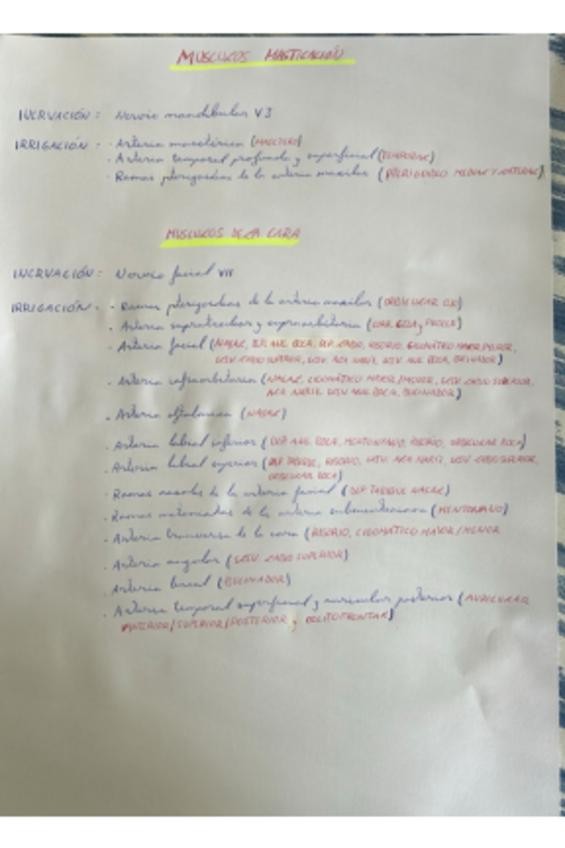 MUSCULOS MASTICACIÓN
INERVACIÓN: Nervio mandibular V3
IRRIGACIÓN: · Arteria maseterica (MASETERO)
· Arteria temporal profunda y superficial (TEMPORAL)
· Ramas pterigoideas de la arteria maxilar (PTERIGOIDEO MEDIAL Y LATERAL)
MUSCULOS DE LA CARA
INERVACIÓN: Nervio facial VII
IRRIGACIÓN: · Ramas pterigoideas de la arteria maxilar (ORBICULAR OJO)
· Arteria supratroclear y supraorbitaria (CORR. CEJA y PROCER)
· Arteria facial (NASAL, DEP. ANG. BOCA, DEP. LABIO, RISORIO, CIGOMÁTICO MAYOR/MENOR,
ELEV. LABIO SUPERIOR, ELEV. ALA NARIZ, ELEV. ANG. BOCA, BUCINADOR)
· Arteria infraorbitaria (NASAL, CIGOMÁTICO MAYOR/MENOR, ELEV. LABIO SUPERIOR,
ALA NARIZ, ELEV. ANG. BOCA, BUCINADOR)
· Arteria oftalmica (NASAL)
· Arteria labial inferior (DEP. ANG. BOCA, MENTONIANO, RISORIO, ORBICULAR BOCA)
· Arteria labial superior (DEP. TABIQUE, RISORIO, ELEV. ALA NARIZ, ELEV. LABIO SUPERIOR,
ORBICULAR BOCA)
· Ramas nasales de la arteria facial (DEP. TABIQUE NASAL)
· Ramas mentonianas de la arteria submentoniana (MENTONIANO)
· Arteria transversa de la cara (RISORIO, CIGOMÁTICO MAYOR/MENOR
· Arteria angular (ELEV. LABIO SUPERIOR)
· Arteria bucal (BUCINADOR)
· Arteria temporal superficial y auricular posterior (AURICULAR
ANTERIOR/SUPERIOR/POSTERIOR y OCCIPITOFRONTAL)